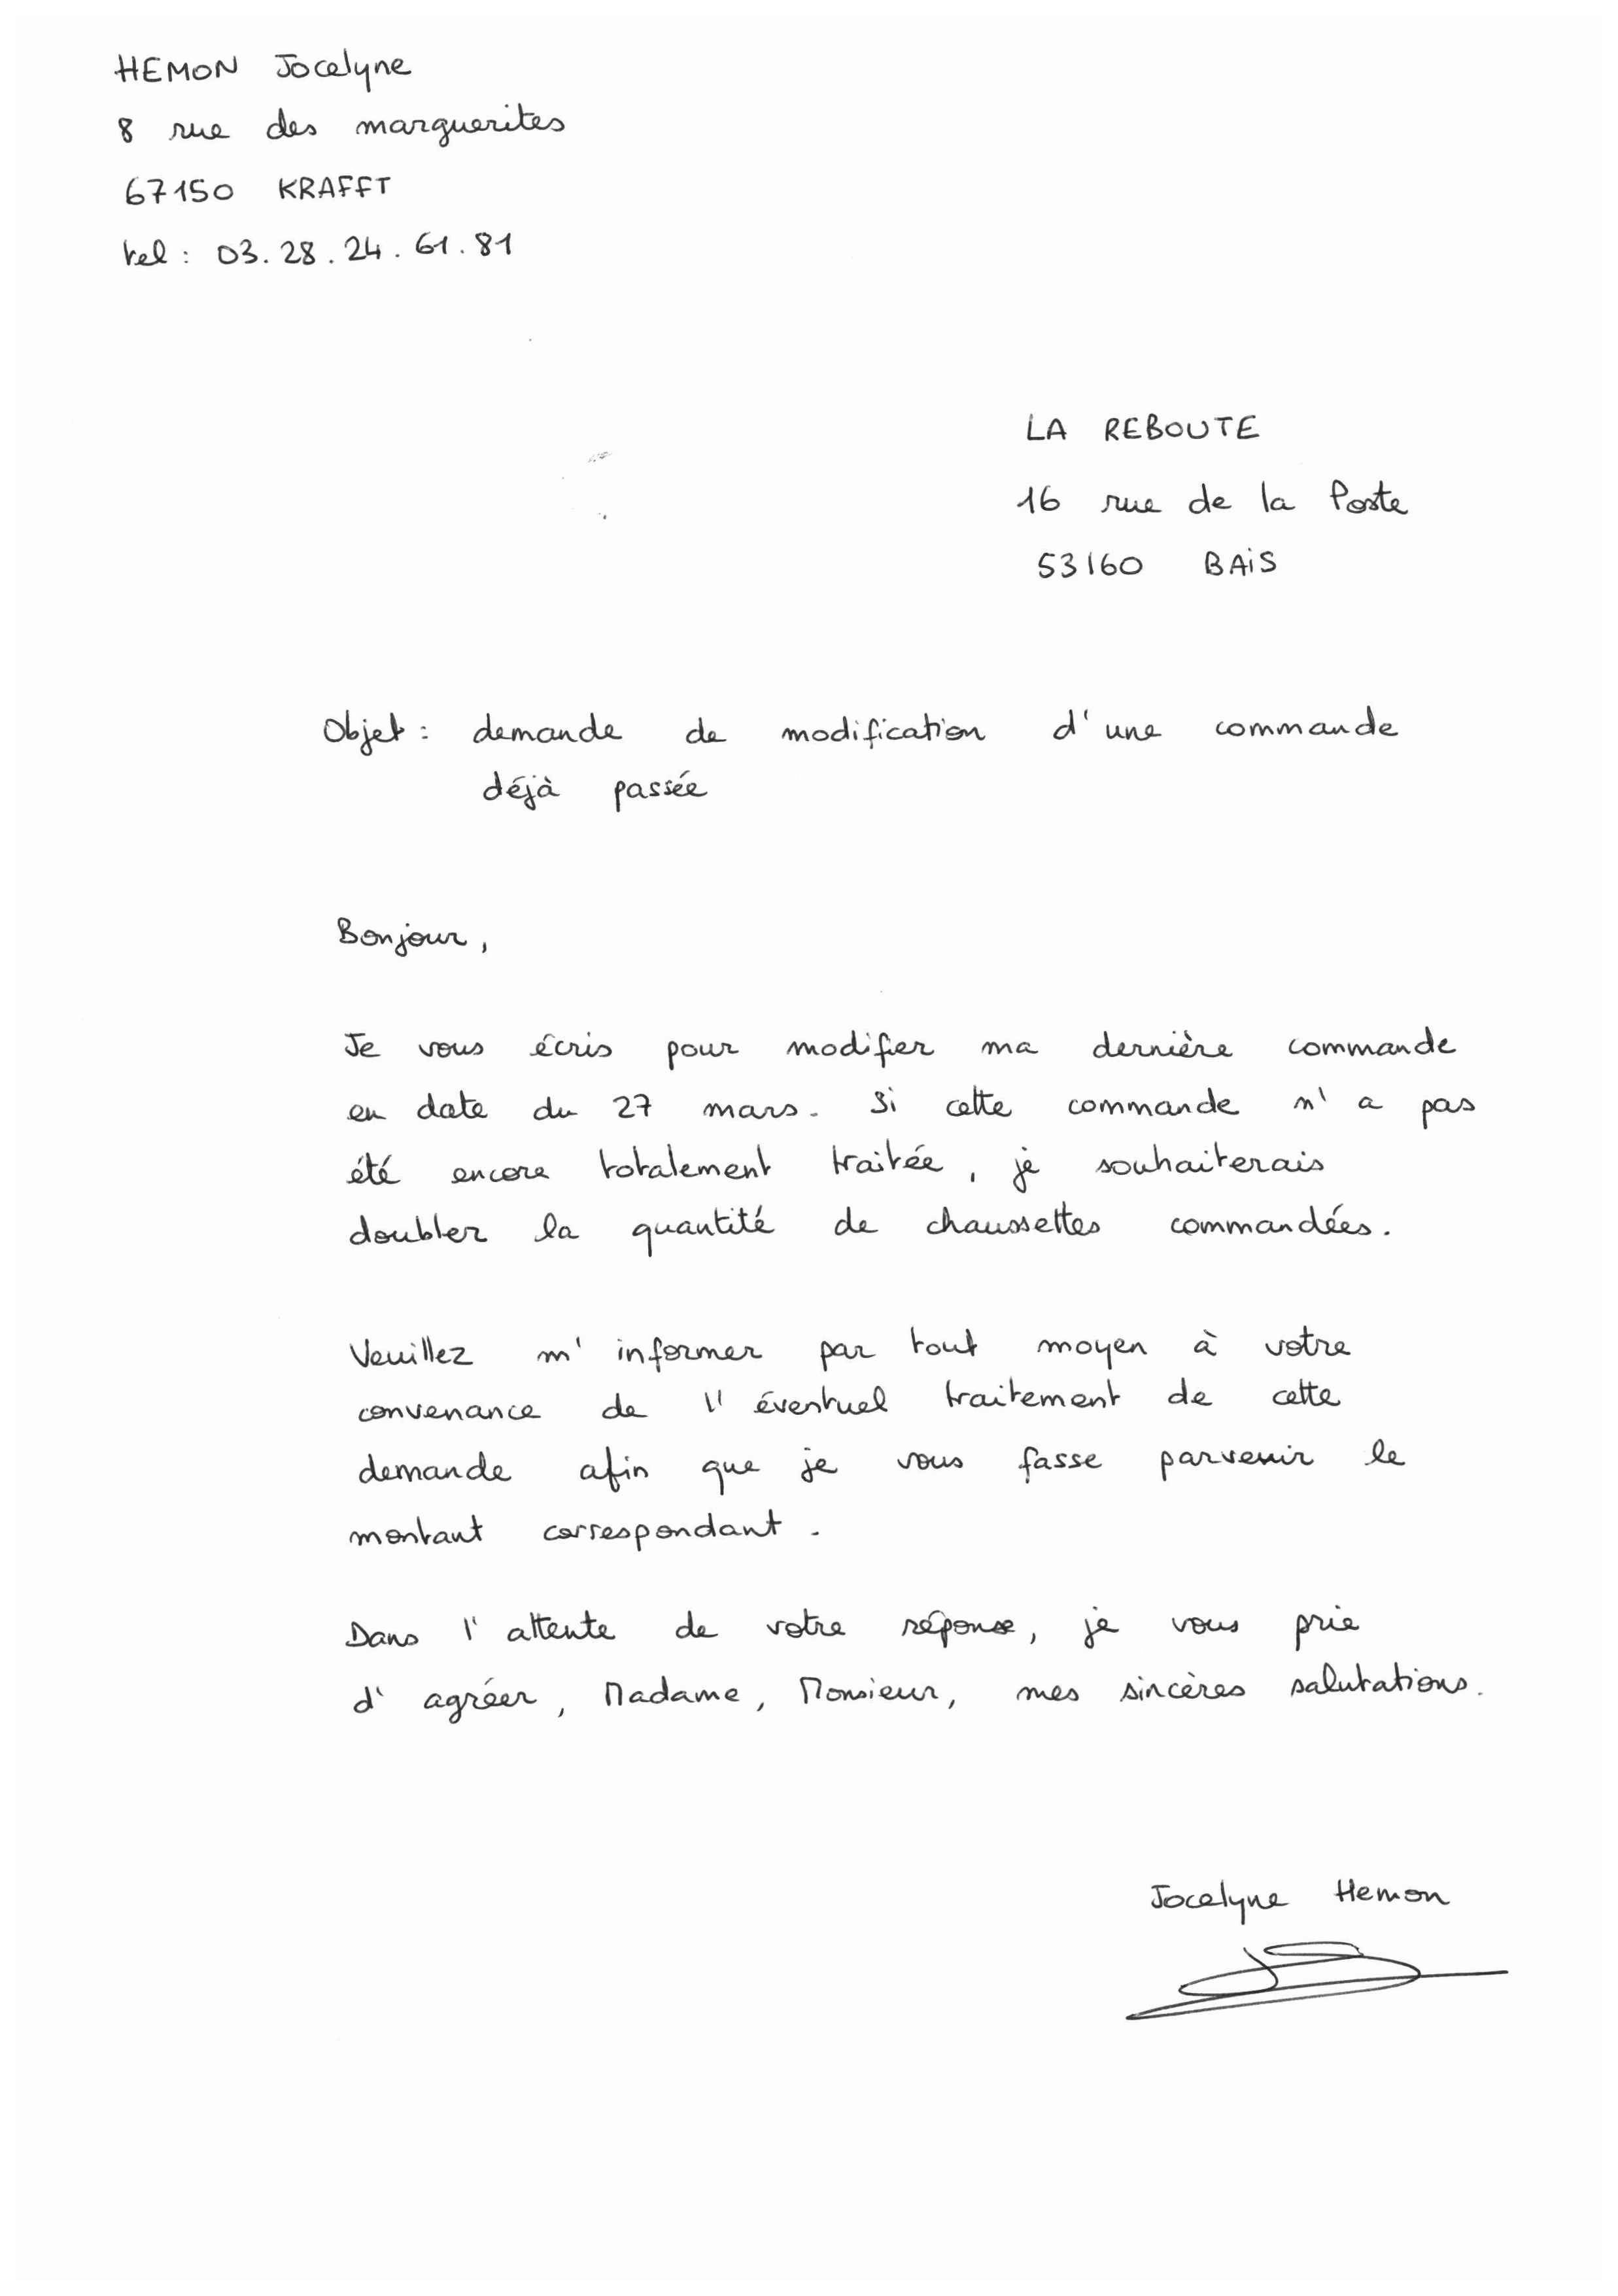 HEMON Jocelyne
8 rue des marguerites
67150 KRAFFT
tel : 03.28.24.61.81
LA REBOUTE
16 rue de la Poste
53160 BAIS
Objet : demande de modification d'une commande
déjà passée
Bonjour,
Je vous écris pour modifier ma dernière commande
en date du 27 mars. Si cette commande n'a pas
été encore totalement traitée, je souhaiterais
doubler la quantité de chaussettes commandées.
Veuillez m'informer par tout moyen à votre
convenance de l'éventuel traitement de cette
demande afin que je vous fasse parvenir le
montant correspondant.
Dans l'attente de votre réponse, je vous prie
d'agréer, Madame, Monsieur, mes sincères salutations.
Jocelyne Hemon